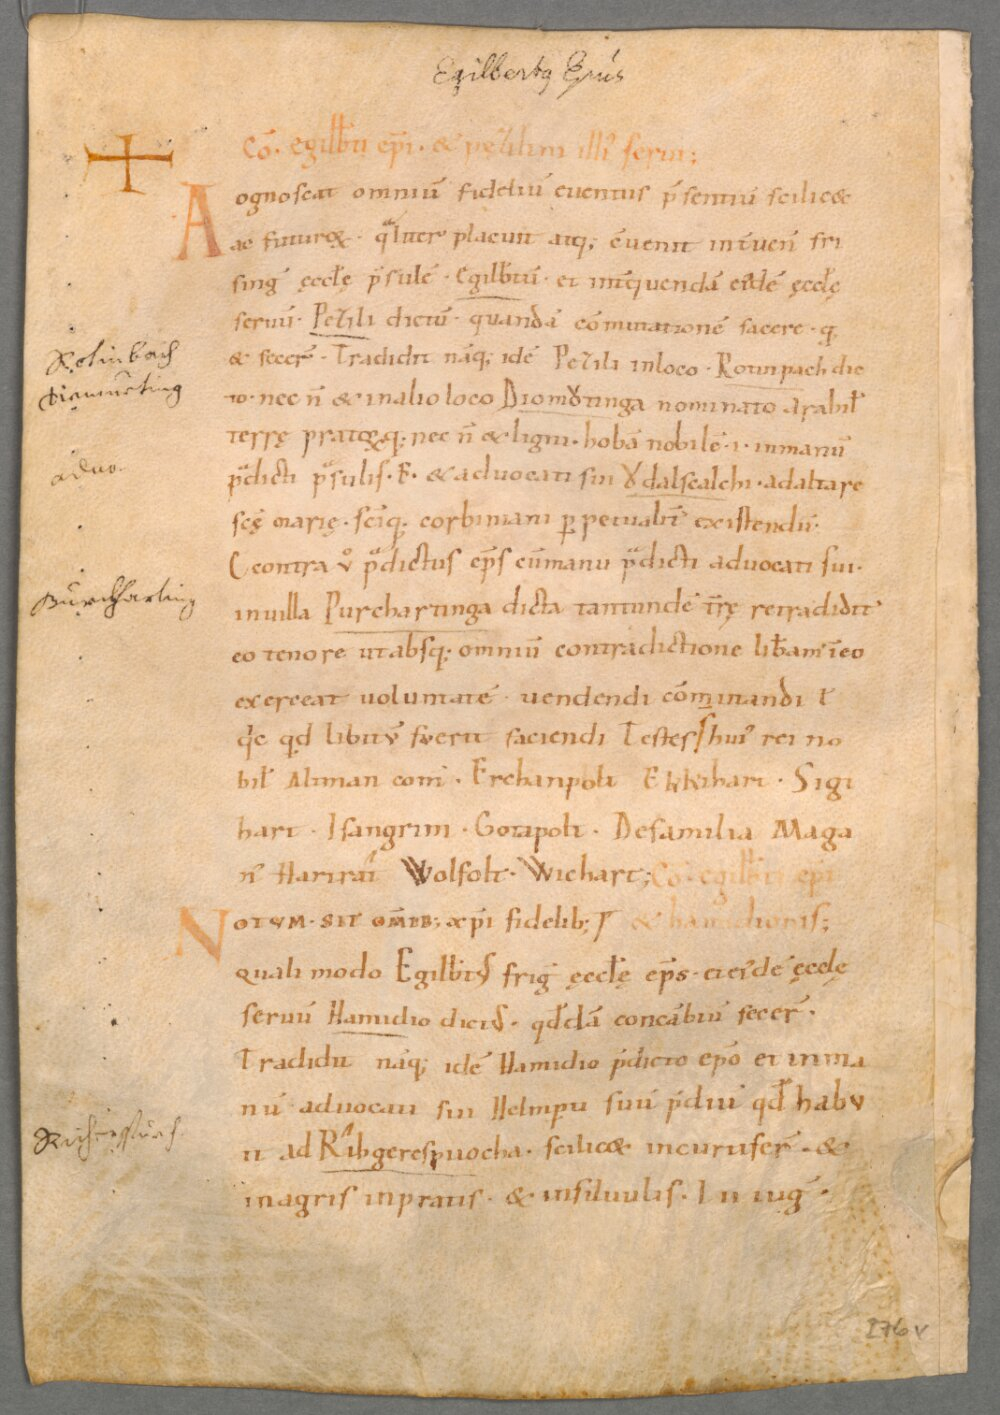 Egilbertus Epus
Cō. egilbti epi. & pezilini illi servi;
Agnoscat omniū fidelium cuentus p̄sentiū scilic&
ac futuroꝝ. qͣliter placuit atq; c̄uenit int̄ ueñ fri
sing̅ ęccl̄ę p̄sulē. Egilbtū. et int̄ quendā eidē ęccl̄ę
seruū. Pezili dictū. quandā cōmutationē facere. q;
& fecer̄. Tradidit nāq; idē Pezili inloco. Rotinpach dic
to. nec n̄ & in alio loco Diomͮtinga nominato arabil̄
terrę pratoꝝq; nec n̄ & ligni. hobā nobilē .i. inmanū
p̄dicti p̄sulis. E. & aduocati sui Ödalscalchi. ad altare
scę̄ marię. scīq; corbiniani ppetualit̄ existendū.
Econtra v̊ p̄dictus ep̄s cūmanu p̄dicti aduocati sui.
inuilla Purchartinga dicta tantundē t̄rę retradidit
eo tenore ut absq; omniū contradictione lib̄am īeo
exerceat voluntatē. uendendi cōmutandi ł
qc̄ qd̄ libitū fuerit faciendi Testes hui᾿ rei no
bil̄ Altman com̄. Erchanpolt Ekkihart. Sigi
hart. Isangrim. Gotapolt. De familia Maga
n̄ Hartrat Wolfolt. Wichart; Cō. egilbti epi
NOTUM. SIT OM̄IB; xp̄i fidelib; & hamidionis;
qualimodo Egilbtus frig̅ ęccl̄ę ep̄s. et eide᷒ ęccl̄ę
seruū Hamidio dictus. qd̄dā concābiū fecer̄.
Tradidit nāq; idē Hamidio p̄dicto epō et inma
nū aduocati sui Helmprti suū p̄diū qd̄ habu
it ad Rihgerespuocha. scilic& incurtifer̄. &
inagris inpratis. & insiluulis. I II iug̅.
Rotinbach
Diemuerting
advo.
Burckharting
276v